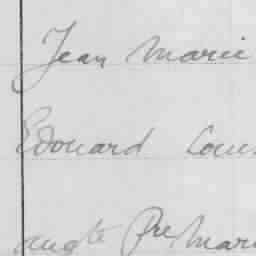 Jean Marie
Edouard Louis
augte Pre Marie